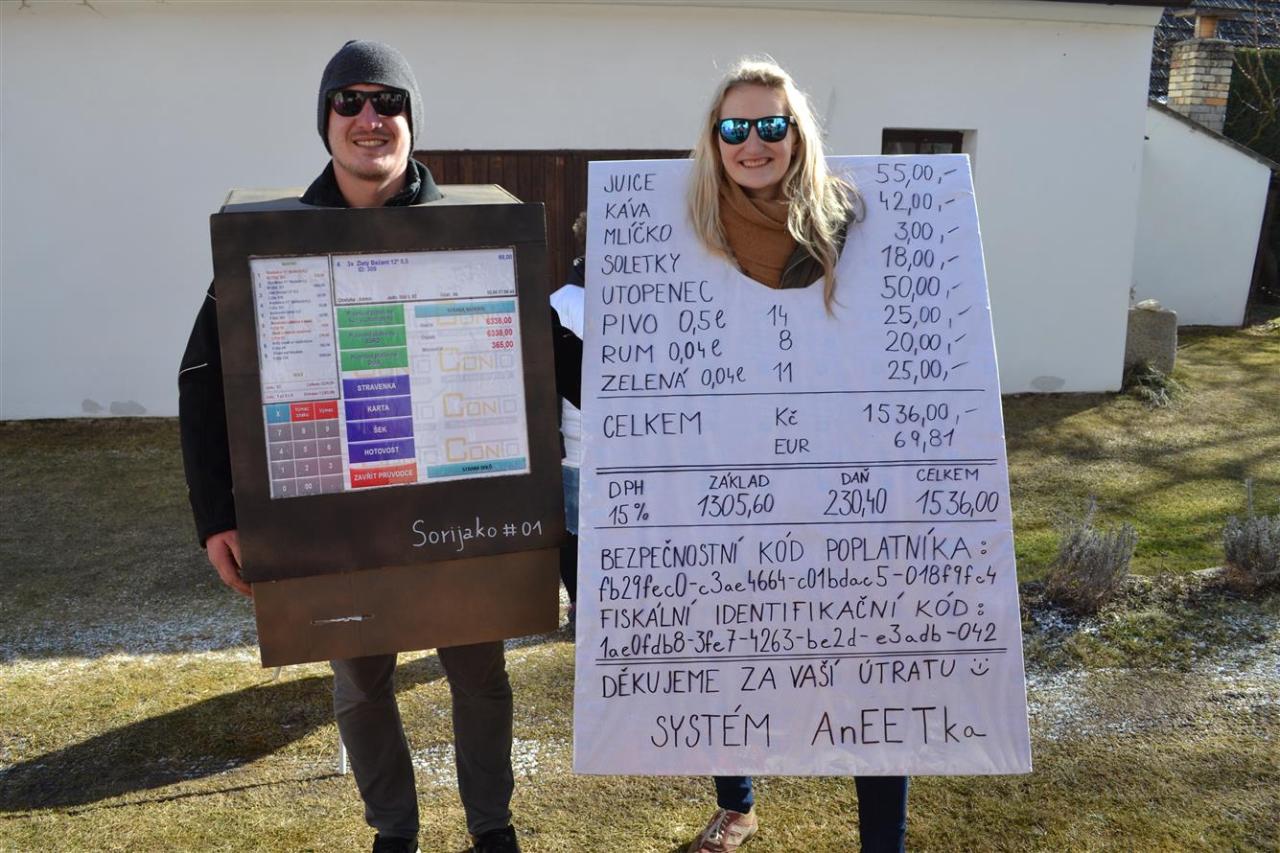 4 3x Zlatý Bažant 12° 0,5
ID: 309
6338,00
6338,00
365,00
STRAVENKA
KARTA
ŠEK
HOTOVOST
ZAVŘÍT PRŮVODCE
X
7 8 9
4 5 6
1 2 3
0 00
CONTO
CONTO
CONTO
Sorijako #01
JUICE 55,00,-
KÁVA 42,00,-
MLÍČKO 3,00,-
SOLETKY 18,00,-
UTOPENEC 50,00,-
PIVO 0,5l 14 25,00,-
RUM 0,04l 8 20,00,-
ZELENÁ 0,04l 11 25,00,-
CELKEM Kč 1536,00,-
EUR 69,81
DPH ZÁKLAD DAŇ CELKEM
15% 1305,60 230,40 1536,00
BEZPEČNOSTNÍ KÓD POPLATNÍKA:
fb29fec0-c3ae4664-c01bdac5-018f9fc4
FISKÁLNÍ IDENTIFIKAČNÍ KÓD:
1ae0fdb8-3fe7-4263-be2d-e3adb-042
DĚKUJEME ZA VAŠÍ ÚTRATU
SYSTÉM AnEETka